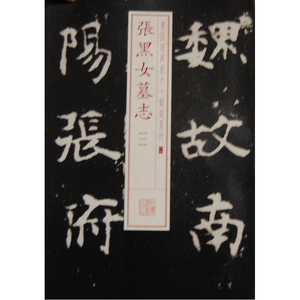 魏故南
陽張府
張黑女墓志
【一】